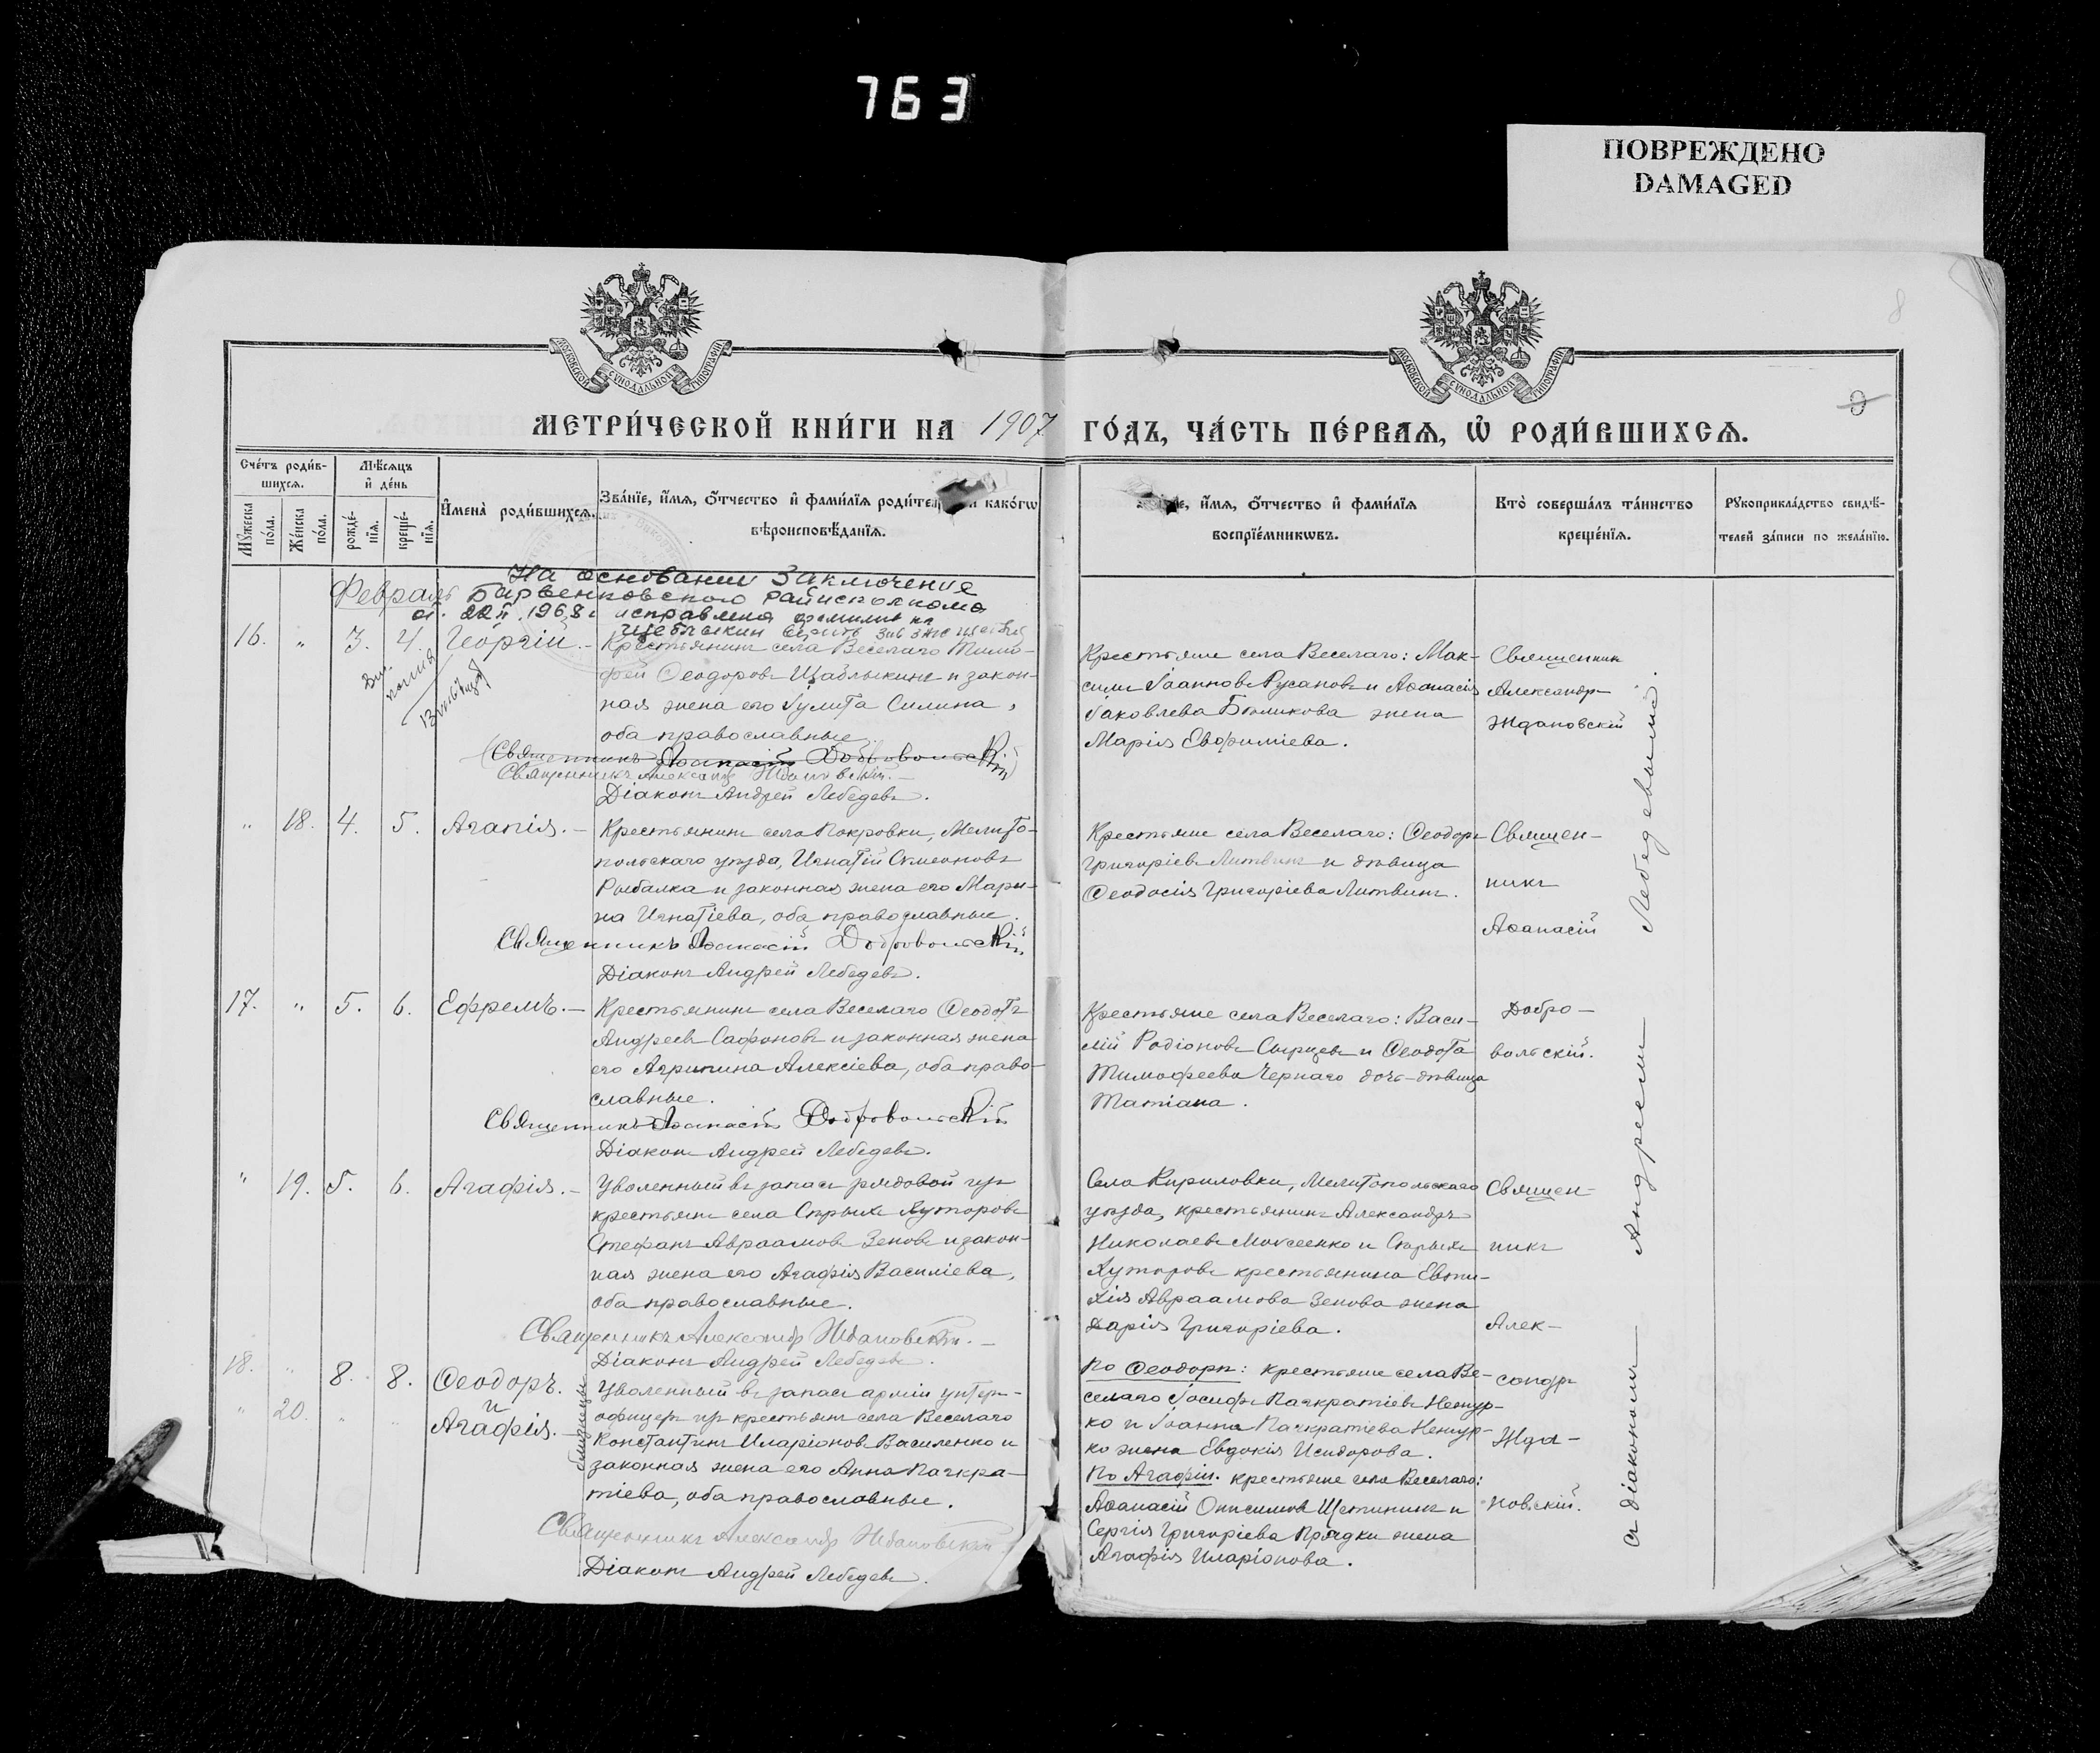 763
ПОВРЕЖДЕНО
DAMAGED
8
9
МОСКОВСКОЙ СѴНОДАЛЬНОЙ ТИПОГРАФІИ
МОСКОВСКОЙ СѴНОДАЛЬНОЙ ТИПОГРАФІИ
МЕТРИ́ЧЕСКОЙ КНИ́ГИ НА 1907 ГО́ДЪ, ЧА́СТЬ ПЕ́РВАЯ, Ѡ РОДИ́ВШИХСЯ.
Сче́тъ роди́в-
шихся.
Мѣ́сяцъ
и де́нь
Мꙋжеска по́ла.
Же́нска по́ла.
рожде́-
нїя.
креще́-
нїя.
И҆мена̀ роди́вшихся.
Зва́нїе, и҆́мя, ѻ҆́тчество и҆ фами́лїя роди́тел и како́гѡ
вѣроисповѣ́данїя.
е, и҆́мя, ѻ҆́тчество и҆ фами́лїя
воспрїе́мникѡвъ.
Кто̀ соверша́лъ та́инство
креще́нїя.
Рꙋкоприкла́дство свидѣ́-
телей за́писи по жела́нїю.
На основании Заключение
Февраль Барвенковского райисполкома
от 22 II 1968 г исправлена фамилия на
Щеблыкин
16. " 3. 4. Георгій. –
Крестьянинъ села Веселаго Тимо-
фей Ѳеодоровъ Щаблыкинъ и закон-
ная жена его Іулита Силина,
оба православные.
(Священникъ Аѳанасій Добровольскій)
Священникъ Александр Ждановскій. –
Діаконъ Андрей Лебедевъ.
Крестьяне села Веселаго: Мак-
симъ Іоанновъ Русановъ и Аѳанасія
Іаковлева Бѣликова жена
Марія Евфиміева.
Священник
Александр
Ждановскій
" 18. 4. 5. Агапія. –
Крестьянинъ села Покровки, Мелито-
польскаго уѣзда, Игнатій Симеоновъ
Рыбалка и законная жена его Мари-
на Игнатіева, оба православные.
Священникъ Аѳанасій Добровольскій
Діаконъ Андрей Лебедевъ.
Крестьяне села Веселаго: Ѳеодоръ
Григоріевъ Литвинъ и дѣвица
Ѳеодосія Григоріева Литвинъ.
Священ-
никъ
Аѳанасій
17. " 5. 6. Ефремъ. –
Крестьянинъ села Веселаго Ѳеодотъ
Андреевъ Сафоновъ и законная жена
его Агрипина Алексіева, оба право-
славные.
Священникъ Аѳанасій Добровольскій
Діаконъ Андрей Лебедевъ.
Крестьяне села Веселаго: Васи-
лій Родіоновъ Сырцевъ и Ѳеодота
Тимофеева Чернаго дочь-дѣвица
Татіана.
Добро-
вольскій.
" 19. 5. 6. Агафія. –
Уволенный въ запасъ рядовой изъ
крестьянъ села Старыхъ Хуторовъ
Стефанъ Авраамовъ Зеновъ и закон-
ная жена его Агафія Василіева,
оба православные.
Священникъ Александр Ждановскій. –
Діаконъ Андрей Лебедевъ.
Села Кириловки, Мелитопольскаго
уѣзда, крестьянинъ Александръ
Николаевъ Моисеенко и Старыхъ
Хуторовъ крестьянина Евти-
хія Авраамова Зенова жена
Дарія Григоріева.
Священ-
никъ
Алек-
18. " 8. 8. Ѳеодоръ.
и
" 20. " " Агафія. –
близнецы
Уволенный въ запасъ арміи унтеръ-
офицеръ изъ крестьянъ села Веселаго
Константинъ Иларіоновъ Василенко и
законная жена его Анна Панкра-
тіева, оба православные.
Священникъ Александр Ждановскій
Діаконъ Андрей Лебедевъ.
По Ѳеодорѣ: крестьяне села Ве-
селаго Іосифъ Панкратіевъ
и Іоанна Панкратіева
жена Евдокія Исидорова.
По Агафіи: крестьяне села Веселаго:
Аѳанасій Онисимовъ Щетининъ и
Сергія Григоріева Прядки жена
Агафія Иларіонова.
сандръ
Жда-
новскій.
съ діакономъ Андреемъ Лебедевымъ.